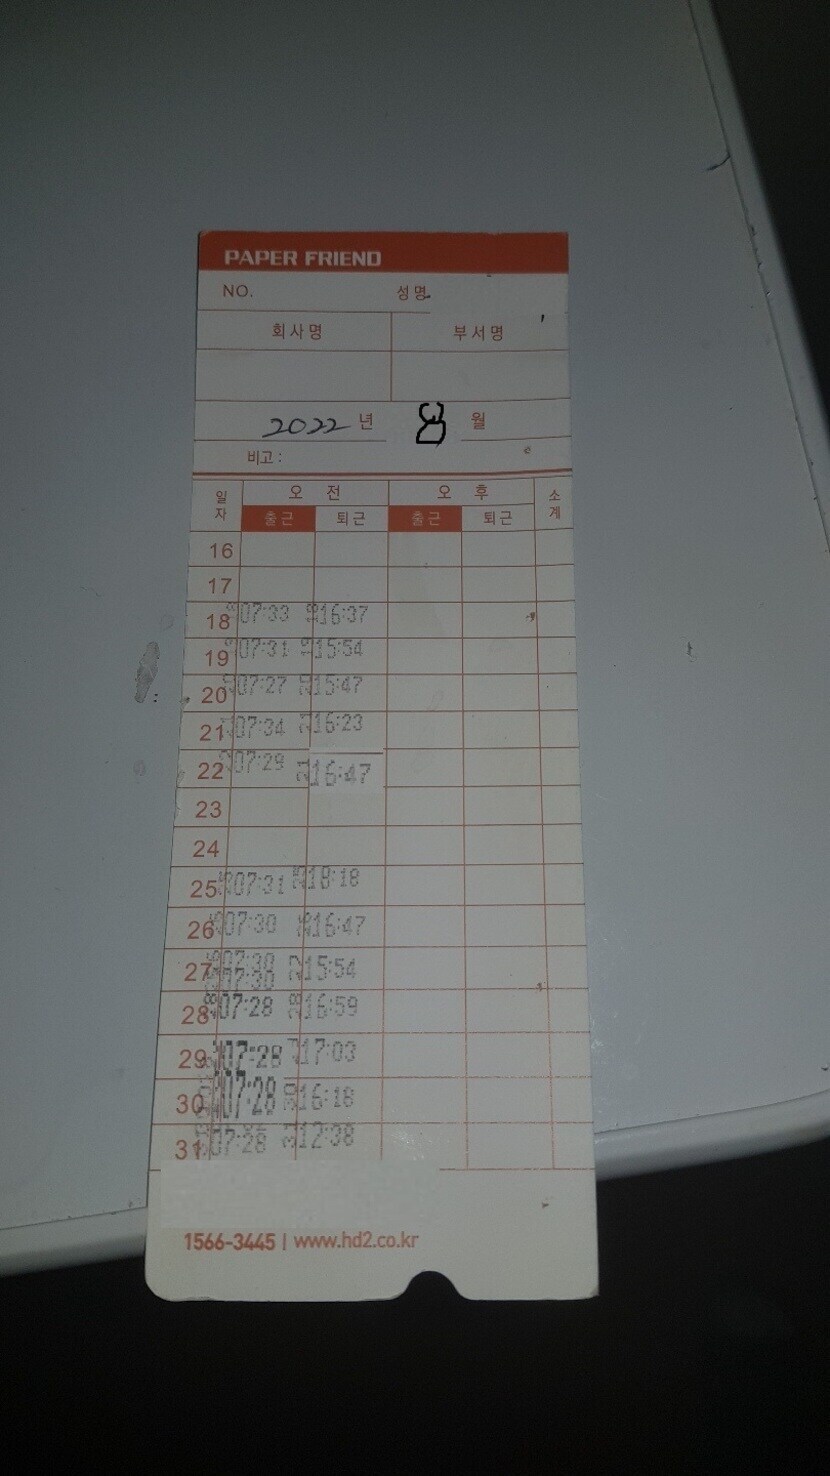 PAPER FRIEND
NO. 성명
회사명 부서명
2022 년 8 월
비고 :
일자 오전 오후 소계
출근 퇴근 출근 퇴근
16
17
18 18 07:33 18 16:37
19 19 07:31 19 15:54
20 20 07:27 20 15:47
21 21 07:34 21 16:23
22 22 07:29 22 16:47
23
24
25 25 07:31 25 18:18
26 26 07:30 26 16:47
27 07:30 27 15:54
07:30
28 28 07:28 28 16:59
29 07:28 17:03
30 07:28 30 16:18
31 07:28 31 12:38
1566-3445 | www.hd2.co.kr